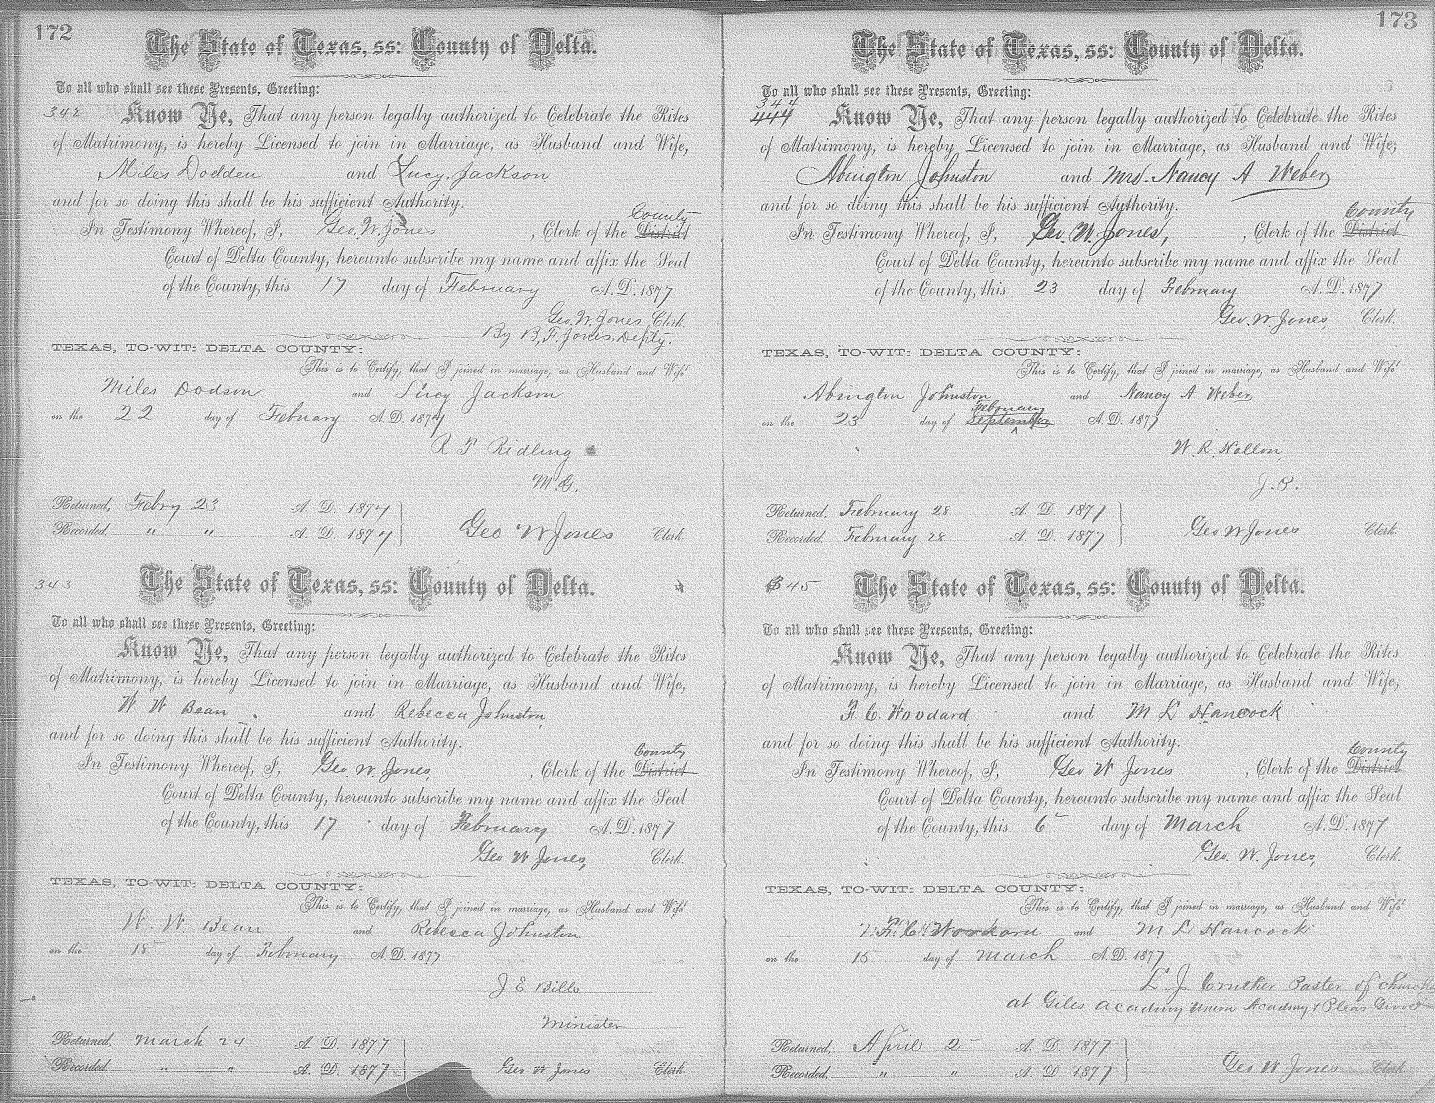 172
The State of Texas, ss: County of Delta.
To all who shall see these Presents, Greeting:
342 Know Ye, That any person legally authorized to Celebrate the Rites
of Matrimony, is hereby Licensed to join in Marriage, as Husband and Wife,
Miles Dodden and Lucy Jackson
and for so doing this shall be his sufficient Authority.
County
In Testimony Whereof, I, Geo. W. Jones, Clerk of the District
Court of Delta County, hereunto subscribe my name and affix the Seal
of the County, this 17 day of February A.D. 1877
Geo. W. Jones Clerk.
By B. F. Jones Depty.
TEXAS, TO-WIT: DELTA COUNTY:
This is to Certify, that I joined in marriage, as Husband and Wife
Miles Dodson and Lucy Jackson
on the 22 day of February A.D. 1877
R P Ridling
M.G.
Returned, Febry 23 A. D. 1877
Recorded, " " A. D. 1877
Geo W Jones Clerk
343 The State of Texas, ss: County of Delta.
To all who shall see these Presents, Greeting:
Know Ye, That any person legally authorized to Celebrate the Rites
of Matrimony, is hereby Licensed to join in Marriage, as Husband and Wife,
W W Bean and Rebecca Johnston
and for so doing this shall be his sufficient Authority.
County
In Testimony Whereof, I, Geo W. Jones, Clerk of the District
Court of Delta County, hereunto subscribe my name and affix the Seal
of the County, this 17 day of February A.D. 1877
Geo W Jones, Clerk.
TEXAS, TO-WIT: DELTA COUNTY:
This is to Certify, that I joined in marriage, as Husband and Wife
W. W Bean and Rebecca Johnston
on the 18 day of February A.D. 1877
J E Bills
Minister
Returned, March 24 A. D. 1877
Recorded, " " A. D. 1877
Geo W Jones Clerk
173
The State of Texas, ss: County of Delta.
To all who shall see these Presents, Greeting:
344
444 Know Ye, That any person legally authorized to Celebrate the Rites
of Matrimony, is hereby Licensed to join in Marriage, as Husband and Wife;
Abington Johnston and Mrs. Nancy A Weber
and for so doing this shall be his sufficient Authority.
County
In Testimony Whereof, I, Geo. W. Jones, , Clerk of the District
Court of Delta County, hereunto subscribe my name and affix the Seal
of the County, this 23 day of February A.D. 1877
Geo. W. Jones, Clerk.
TEXAS, TO-WIT: DELTA COUNTY:
This is to Certify, that I joined in marriage, as Husband and Wife
Abington Johnston and Nancy A Weber
February
on the 23 day of September A.D. 1877
W. R. Hollon,
J.P.
Returned, February 28 A. D. 1877
Recorded, February 28 A. D. 1877
Geo W Jones Clerk
345 The State of Texas, ss: County of Delta.
To all who shall see these Presents, Greeting:
Know Ye, That any person legally authorized to Celebrate the Rites
of Matrimony, is hereby Licensed to join in Marriage, as Husband and Wife;
F. C. Woodard and M L Hancock
and for so doing this shall be his sufficient Authority.
County
In Testimony Whereof, I, Geo W Jones , Clerk of the District
Court of Delta County, hereunto subscribe my name and affix the Seal
of the County, this 6 day of March A.D. 1877
Geo. W. Jones, Clerk.
TEXAS, TO-WIT: DELTA COUNTY:
This is to Certify, that I joined in marriage, as Husband and Wife
F. C. Woodard and M L Hancock
on the 15 day of March A.D. 1877
L J Crutcher Paster of
at Giles Acadimy Union Acadmy & Pleas Grove
Returned, April 2 A. D. 1877
Recorded, " " A. D. 1877
Geo W Jones Clerk